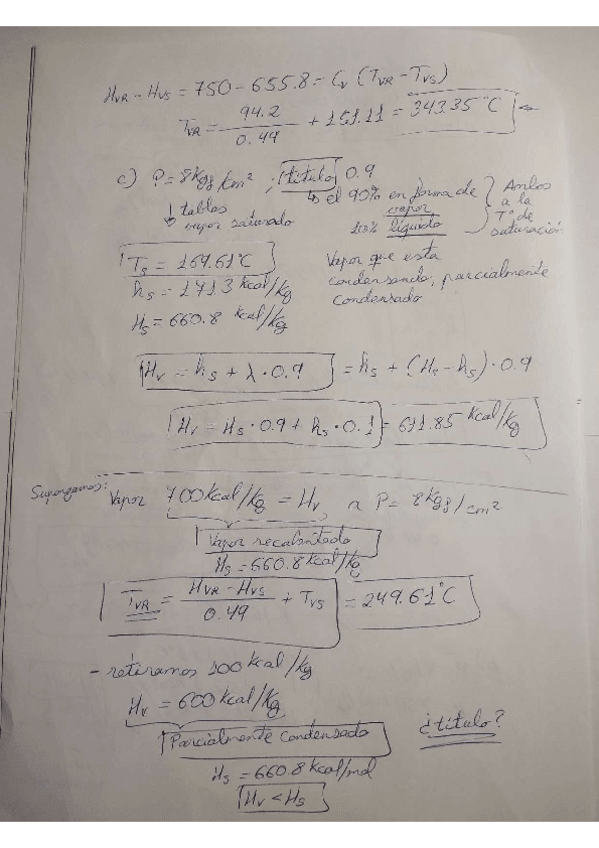 H_VR - H_VS = 750 - 655.8 = C_V (T_VR - T_VS)
T_VR = 94.2 / 0.49 + 151.11 = 343.35 °C
c) P = 8 Kgf/cm² ; título 0.9
↓ tablas vapor saturado
↳ el 90% en forma de vapor,
10% líquido
} Ambos a la Tª de saturación
T_S = 169.61 °C
h_S = 171.3 kcal/kg
H_S = 660.8 kcal/kg
Vapor que esta condensando, parcialmente condensado
H_V = h_S + λ · 0.9 = h_S + (H_S - h_S) · 0.9
H_V = H_S · 0.9 + h_S · 0.1 = 611.85 kcal/kg
Supongamos:
Vapor 700 kcal/kg = H_V a P = 8 Kgf/cm²
Vapor recalentado
H_S = 660.8 kcal/kg
T_VR = (H_VR - H_VS) / 0.49 + T_VS = 249.61 °C
- retiramos 100 kcal/kg
H_V = 600 kcal/kg
Parcialmente Condensado
¿título?
H_S = 660.8 kcal/mol
H_V < H_S